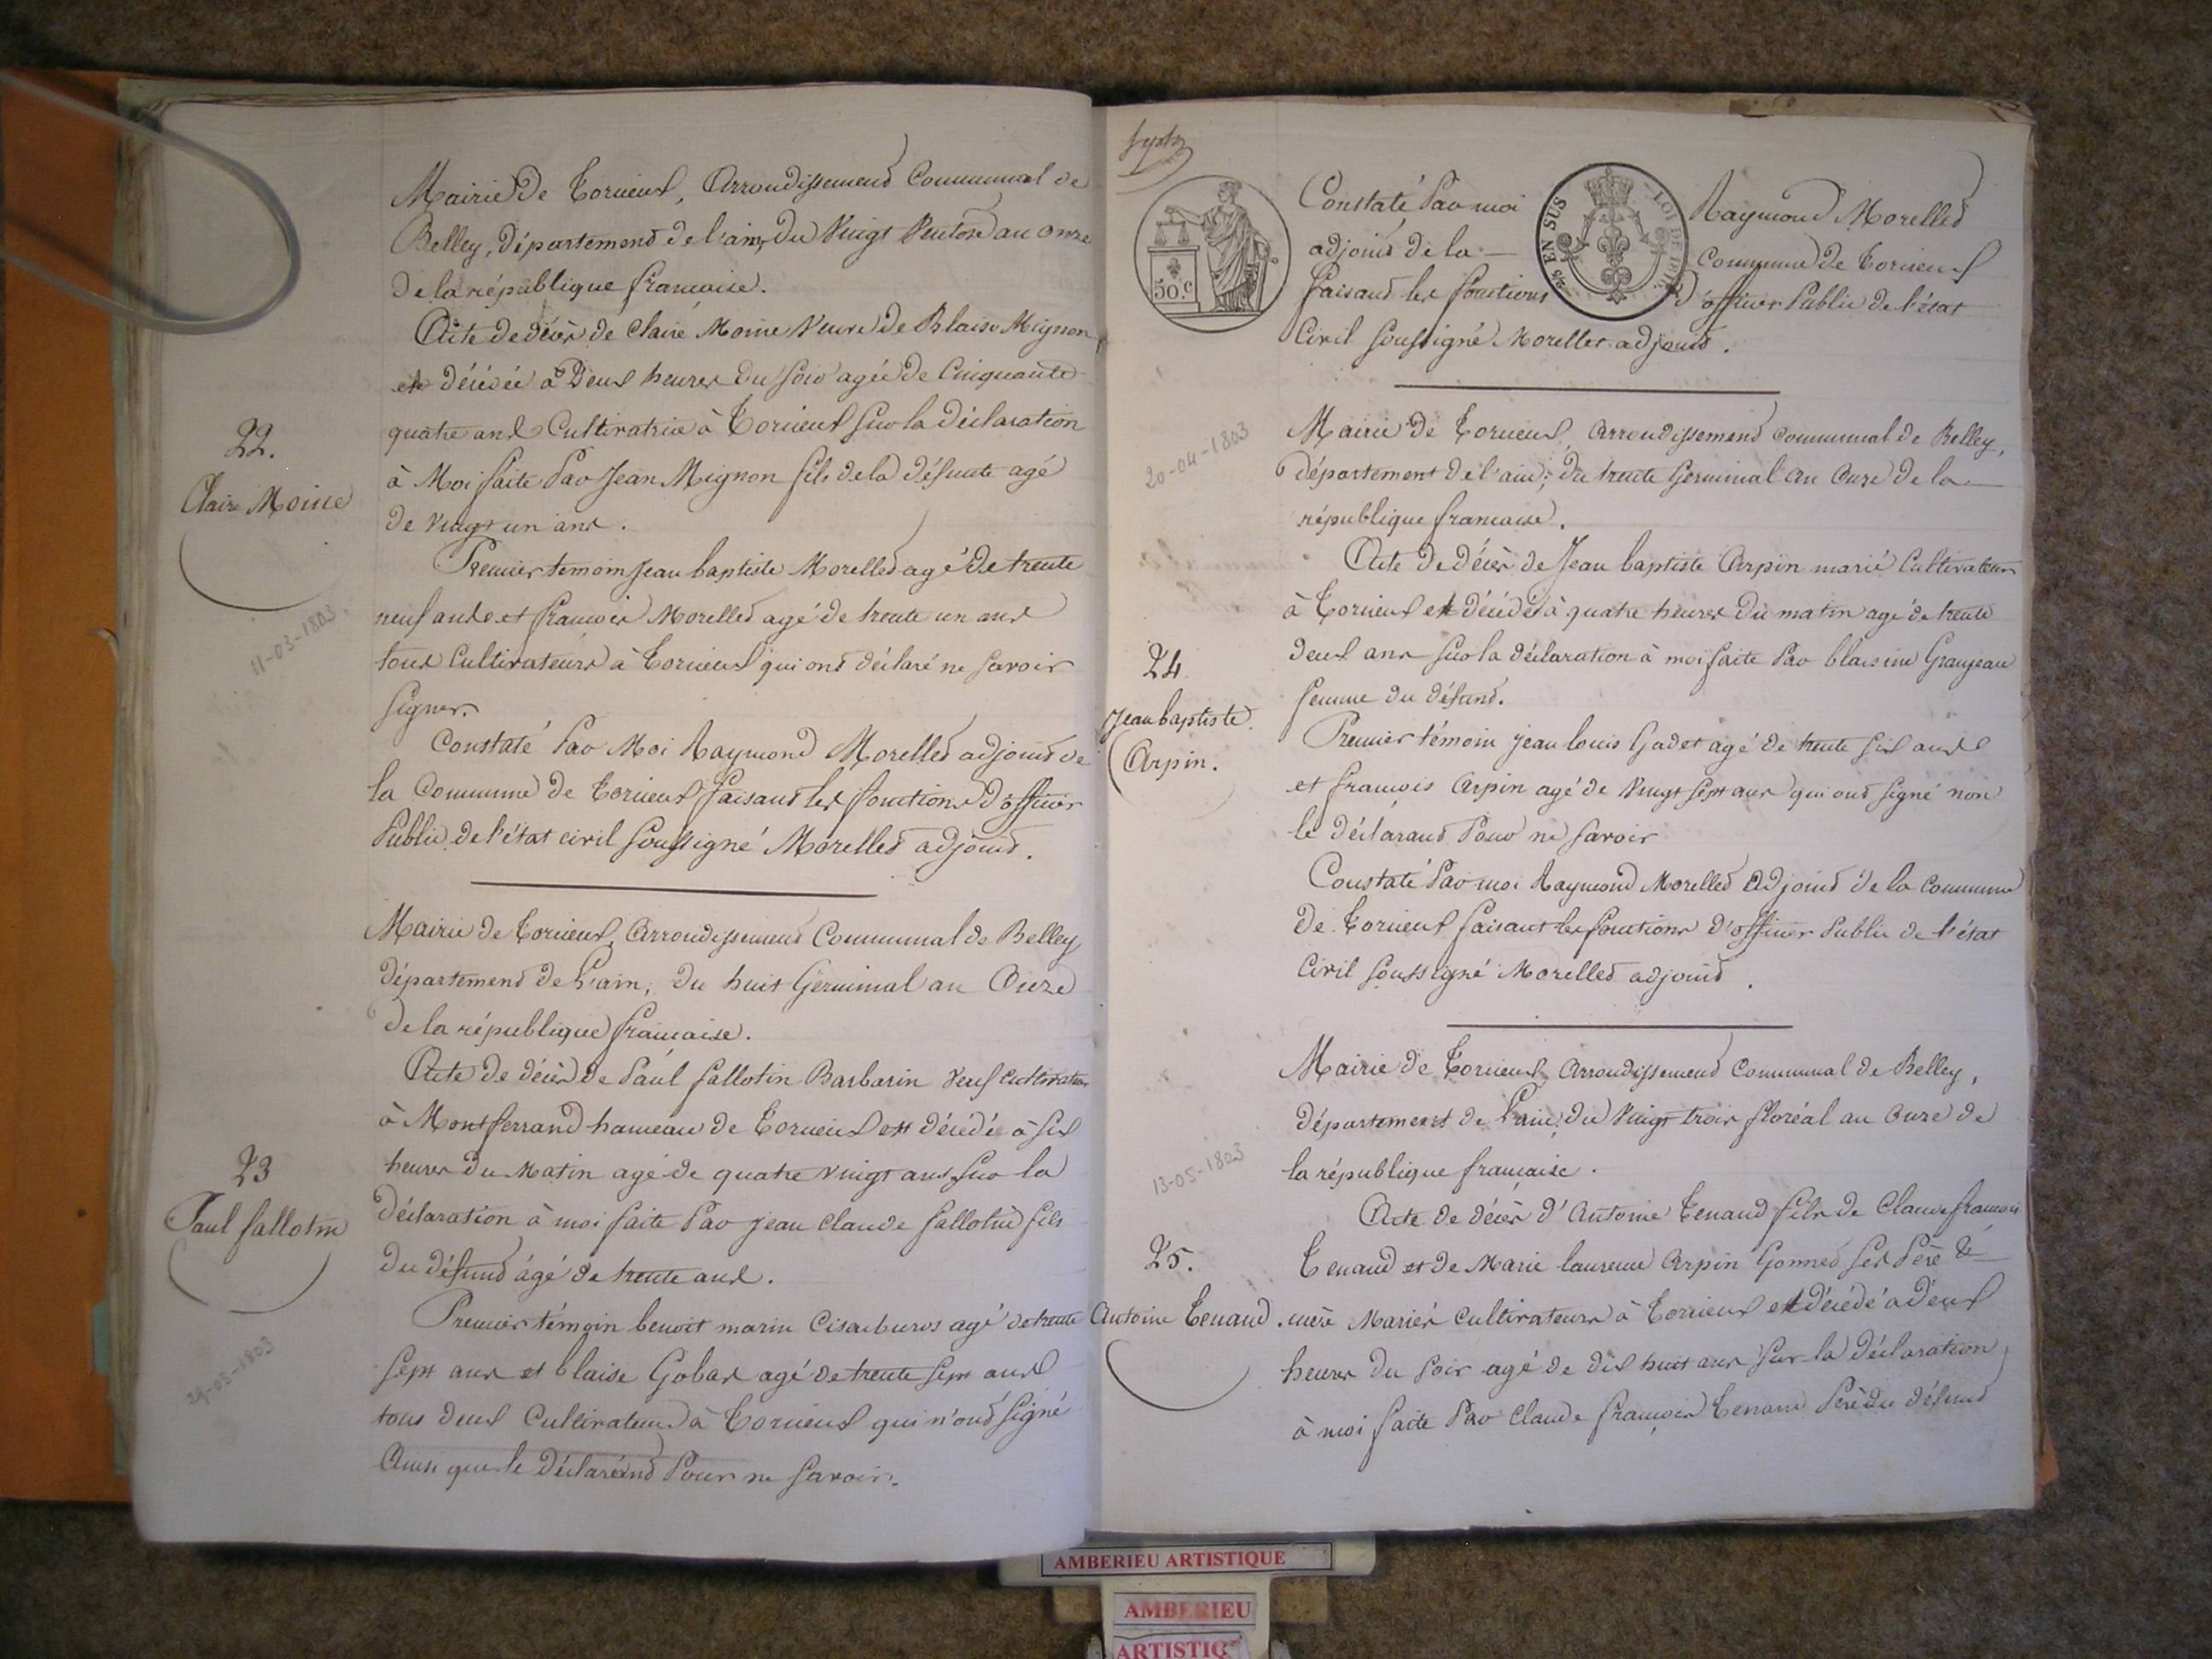 Mairie de Torcieux, Arrondissement Communal de
Belley, département de l'ain, du Vingt Ventose an onze
de la république francaise.
Acte de décès de Claire Moine Veuve de Blaise Mignon,
est décédée à Deux heures du soir agée de Cinquante
quatre ans Cultivatrice à Torcieux sur la déclaration
à Moi faite Par Jean Mignon fils de la défunte agé
de Vingt un ans.
22.
Claire Moine
Premier temoin Jean baptiste Morelled agé de trente
neuf ans et francois Morelled agé de trente un ans
tous Cultivateurs à Torcieux qui ont déclaré ne savoir
signer.
11-03-1803.
Constaté Par Moi Raymond Morelled adjoint de
la Commune de Torcieux faisant les fonctions d'officier
Public de l'état civil soussigné Morelled adjoint.
Mairie de Torcieux, Arrondissement Communal de Belley
département de L'ain, du huit Germinal an Onze
de la république francaise.
Acte de décès de Paul fallotin Barbarin veuf cultivateur
à Montferrand hameau de Torcieux est décédé à six
heures du Matin agé de quatre vingt ans sur la
déclaration à moi faite Par Jean Claude fallotin fils
du défund agé de trente ans.
23
Paul fallotin
Premier témoin benoit marin Cisarburos agé de trente
sept ans et blaise Gobas agé de trente sept ans
tous deux Cultivateurs à Torcieux qui n'ont signé
Ainsi que le déclarand Pour ne savoir.
29-03-1803
50.c
EN SUS
LOI DE 1816
Constaté Par moi Raymond Morelled
adjoint de la Commune de Torcieux
faisant les fonctions d'officier Public de l'état
Civil soussigné Morelled adjoint.
Mairie de Torcieux, Arrondissement communal de Belley,
département de l'ain; du trente Germinal an Onze de la
république francaise.
20-04-1803
Acte de décès de Jean baptiste Arpin marié Cultivateur
à Torcieux est décédé à quatre heures du matin agé de trente
deux ans sur la déclaration à moi faite Par blaisine Granjean
femme du défund.
24
Jean baptiste
Arpin.
Premier témoin jean louis Gadet agé de trente six ans
et francois Arpin agé de Vingt sept ans qui ont signé non
le déclarand Pour ne savoir
Constaté Par moi Raymond Morelled Adjoint de la commune
De Torcieux faisant les fonctions d'officier Public de l'état
Civil soussigné Morelled adjoint.
Mairie de Torcieux, Arrondissement Communal de Belley,
département de L'ain, du Vingt trois floréal an Onze de
la république francaise.
13-05-1803
Acte de décès d'Antoine Tenand fils de Claude francois
Tenand et de Marie laurence Arpin Gonned ses Père &
mère Mariés cultivateurs à Torcieux est décédé à deux
heures du soir agé de dix huit ans sur la déclaration
à moi faite Par Claude francois Tenand Père du défund
25.
Antoine Tenand.
AMBERIEU ARTISTIQUE
AMBERIEU
ARTISTIQ